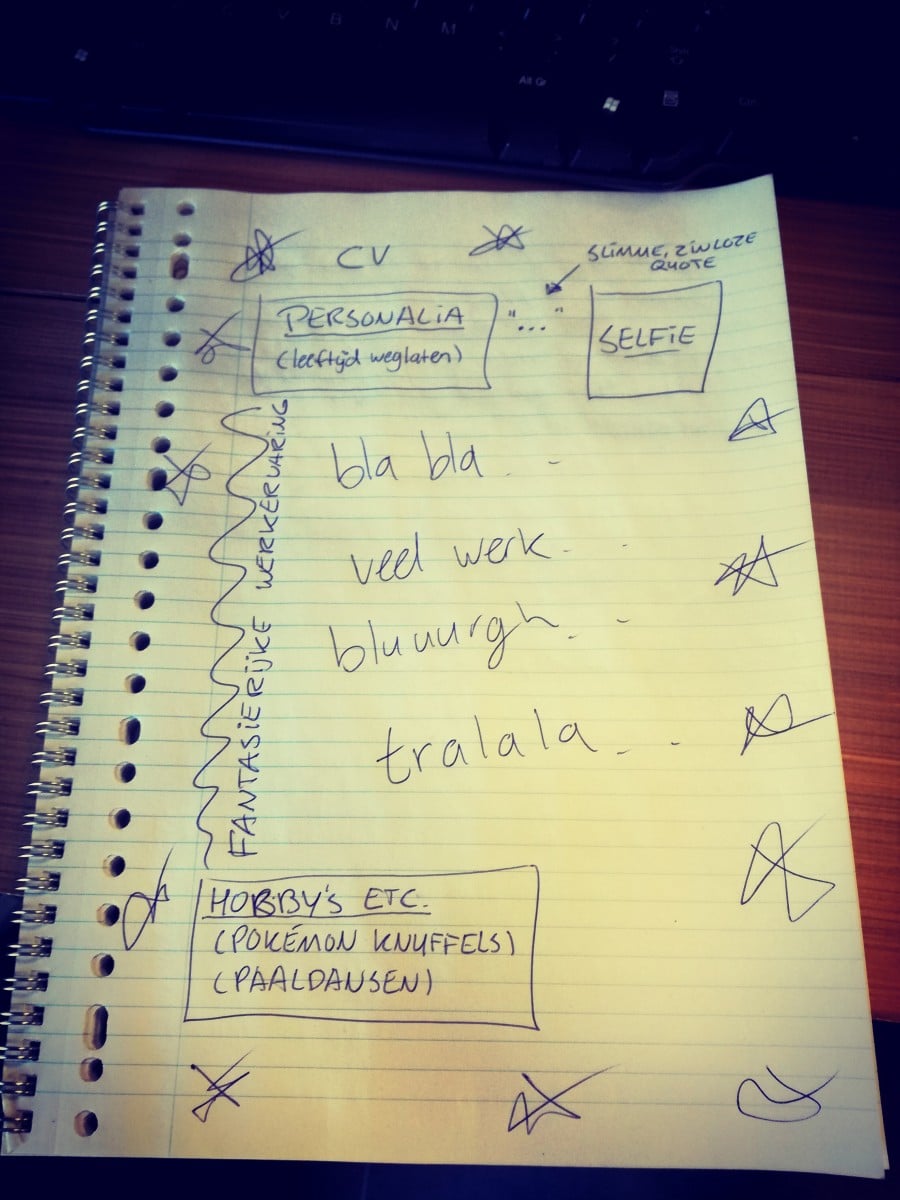 V B N M
Alt Gr
CV
SLIMME, ZINLOZE
QUOTE
PERSONALIA
(leeftijd weglaten)
"..."
SELFIE
FANTASIERIJKE WERKERVARING
bla bla . -
veel werk . .
bluuurgh . -
tralala - . -
HOBBY'S ETC.
(POKÉMON KNUFFELS)
(PAALDANSEN)